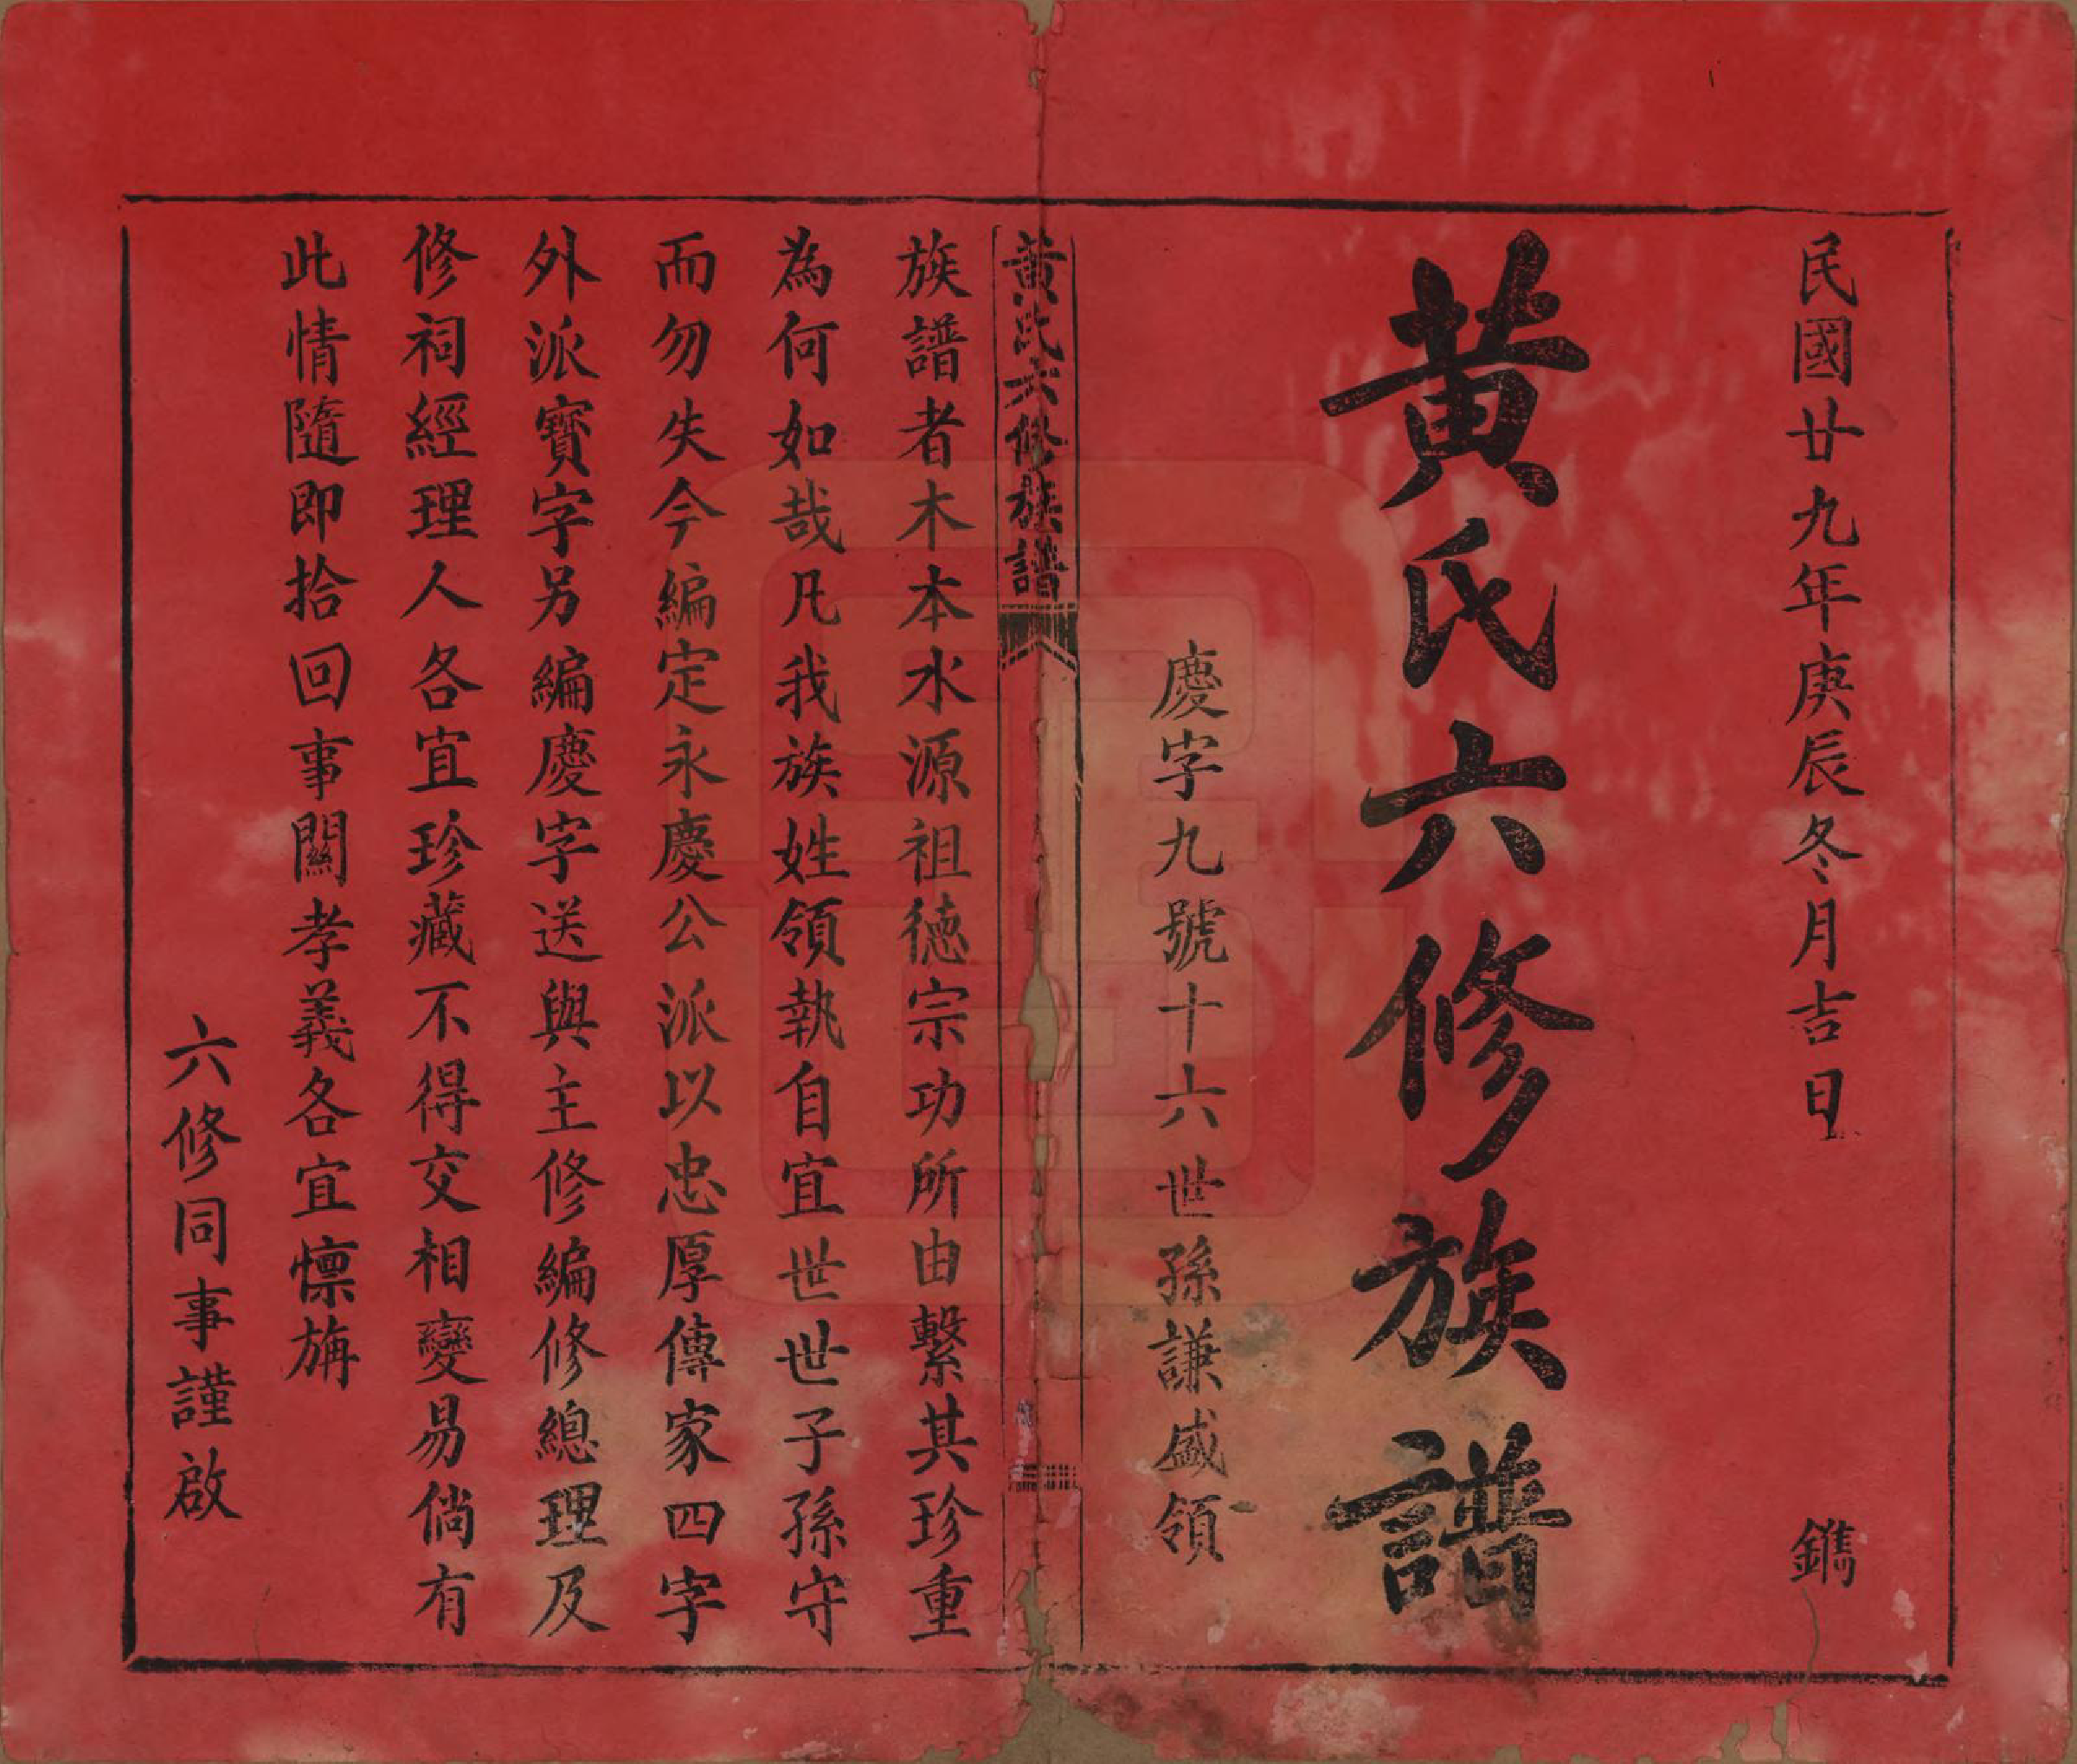 民國廿九年庚辰冬月吉日 鐫
黃氏六修族譜
慶字九號十六世孫謙盛領
黃氏六修族譜
族譜者木本水源祖德宗功所由繫其珍重
為何如哉凡我族姓領執自宜世世子孫守
而勿失今編定永慶公派以忠厚傳家四字
外派寶字另編慶字送與主修編修總理及
修祠經理人各宜珍藏不得交相變易倘有
此情隨即拾回事關孝義各宜懍旃
六修同事謹啟